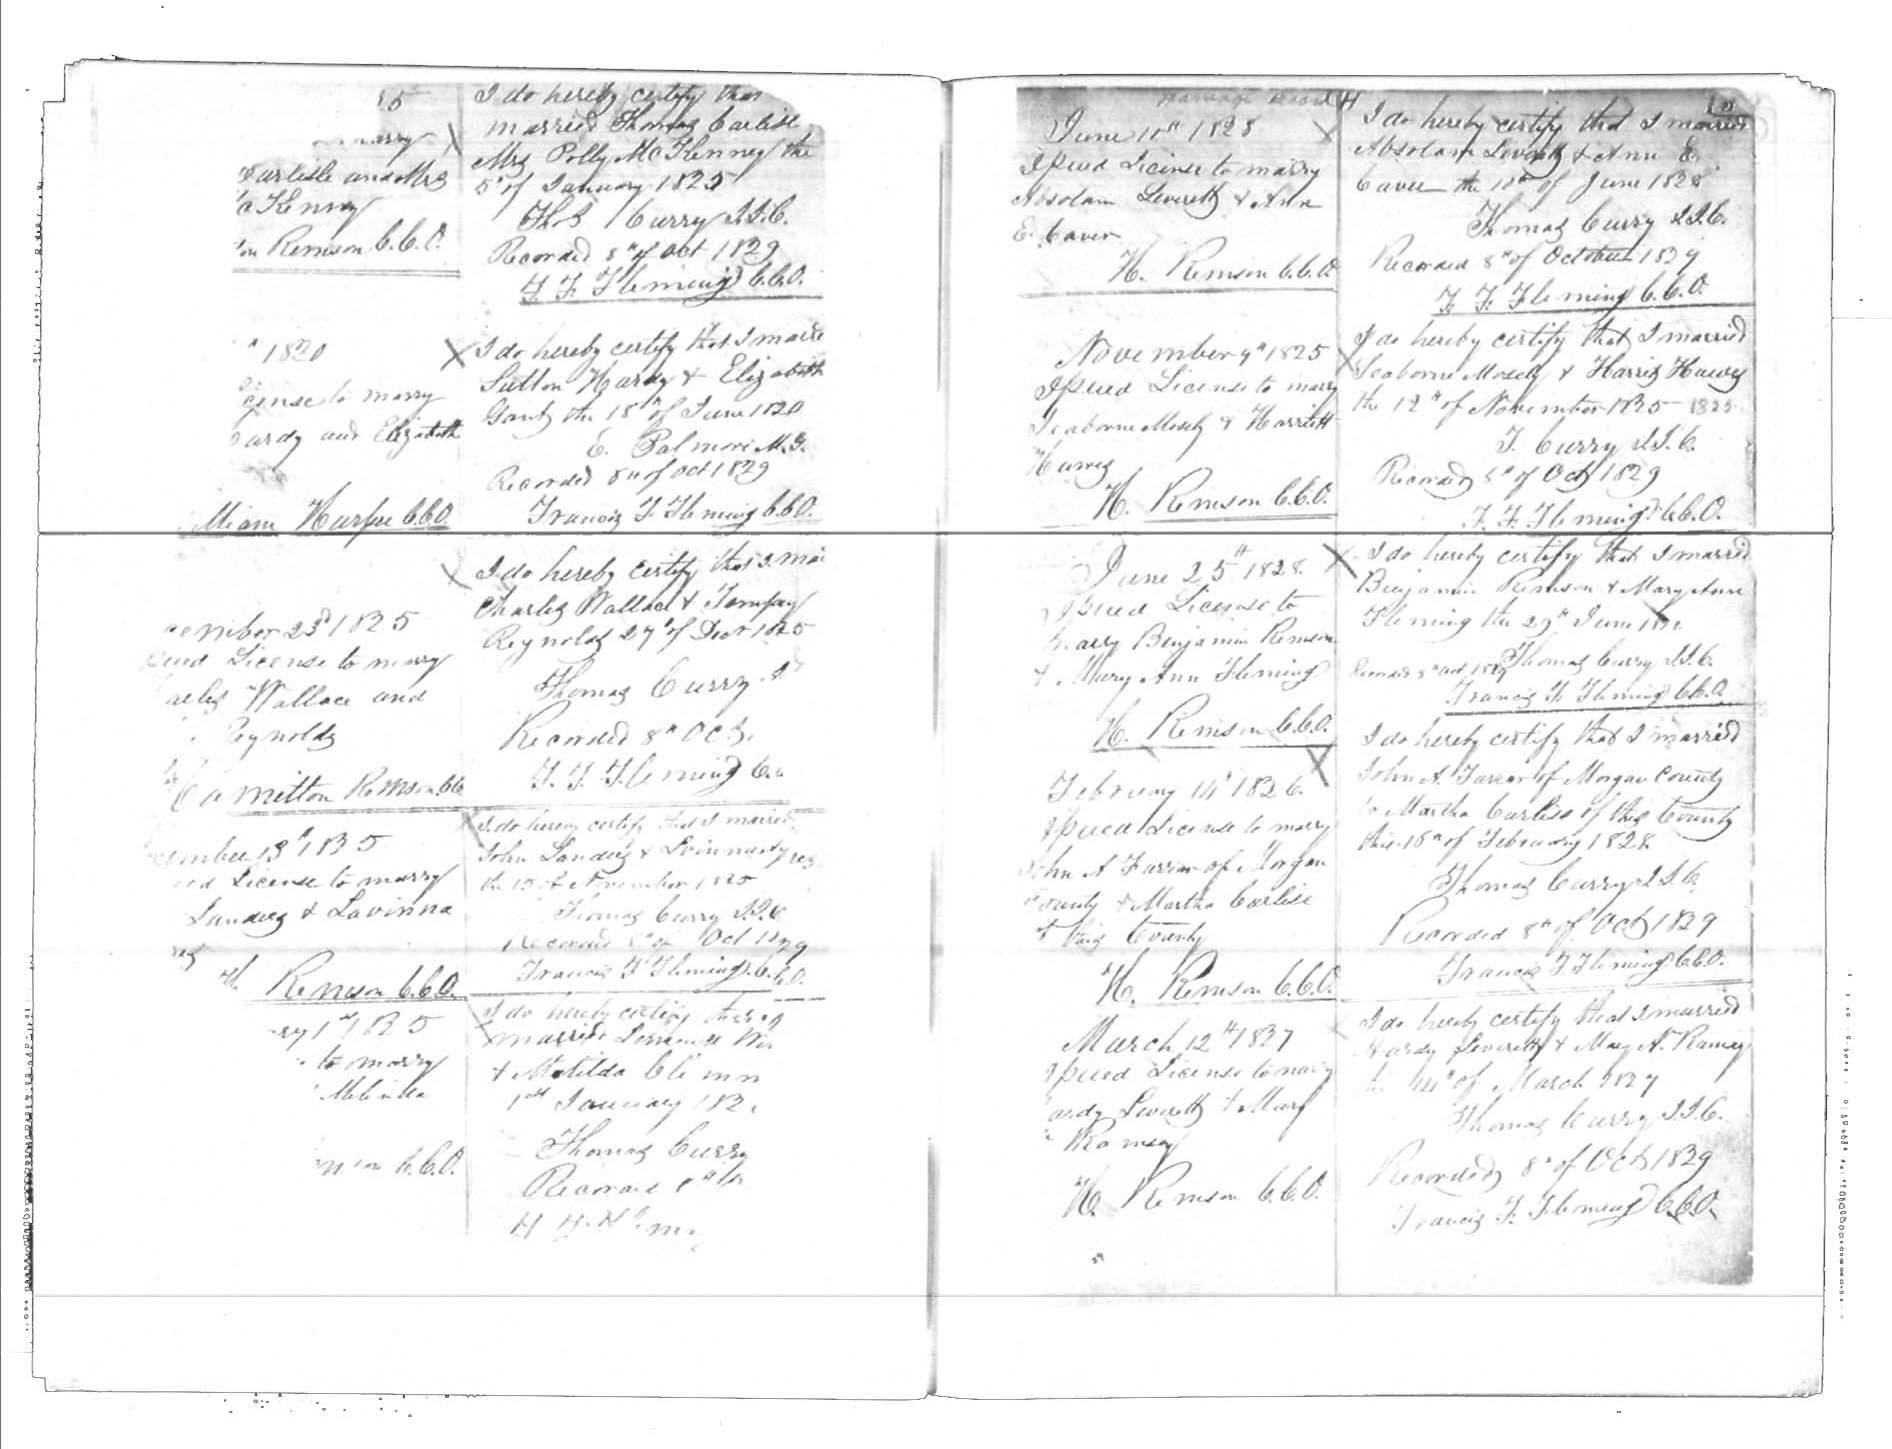 marry
Carlisle and Mrs
Kenney
Remson C.C.O.
I do hereby certify that
married Thomas Carlisle
Mrs Polly McKenney the
5th of January 1825
Thos Curry J.I.C.
Recorded 8th of Oct 1829
F. F. Fleming C.C.O.
1820
cense to marry
ardy and Elizabeth
Harper C.C.O.
I do hereby certify that I marri
Sutton Hardy & Elizabeth
Gant the 18th of June 1820
E. Palmore M.G.
Recorded 8th of Oct 1829
Francis F. Fleming C.C.O.
cember 23d 1825
License to marry
arles Wallace and
Reynolds
Hamilton Remson CC
I do hereby certify that I mar
Charles Wallace & Tempay
Reynolds 27th of Decr 1825
Thomas Curry J
Recorded 8th Oct.
F. F. Fleming C.C
cember 13th 1825
License to marry
Landers & Lavinna
H. Remson C.C.O.
I do hereby certify that I married
John Landers &
the 15 of November 1825
Thomas Curry J.I.C
Recorded 8th of Oct 1829
Francis F. Fleming C.C.O.
ry 1st 1825
to marry
C.C.O.
I do hereby certify that I
married
& Matilda
1st January 182
Thomas Curry
Recorded 8th
Marriage Record H
June 10th 1828
Issued License to marry
Absolam Leverett & Ann
E. Caver
H. Remson C.C.O.
I do hereby certify that I married
Absolam Leverett & Ann E.
Caver the 10th of June 1828
Thomas Curry J.I.C.
Recorded 8th of October 1829
F. F. Fleming C.C.O.
November 9th 1825
Issued License to marry
Seaborne Mosely & Harriett
Hawes
H. Remson C.C.O.
I do hereby certify that I married
Seaborne Mosely & Harris Hawes
the 12th of November 1825 1825
T. Curry J.I.C.
Recorded 8th of Oct 1829
F. F. Fleming C.C.O.
June 25th 1828
Issued License to
Marry Benjamin Remson
& Mary Ann Fleming
H. Remson C.C.O.
I do hereby certify that I married
Benjamin Remson & Mary Ann
Fleming the 29th June
Thomas Curry J.I.C.
Recorded 8th Oct 1829
Francis F. Fleming C.C.O.
February 14th 1826
Issued License to marry
John A Farrar of Morgan
County & Martha Carlisle
of this County
H. Remson C.C.O.
I do hereby certify that I married
John A. Farrar of Morgan County
to Martha Carlisle of this County
this 16th of February 1828
Thomas Curry J.I.C.
Recorded 8th of Oct 1829
Francis F. Fleming C.C.O.
March 12th 1827
Issued License to marry
ardy Leverett & Mary
Ramsey
H. Remson C.C.O.
I do hereby certify that I married
Hardy Leverett & Mary A. Ramsey
the 14th of March 1827
Thomas Curry J.I.C.
Recorded 8th of Oct 1829
Francis F. Fleming C.C.O.